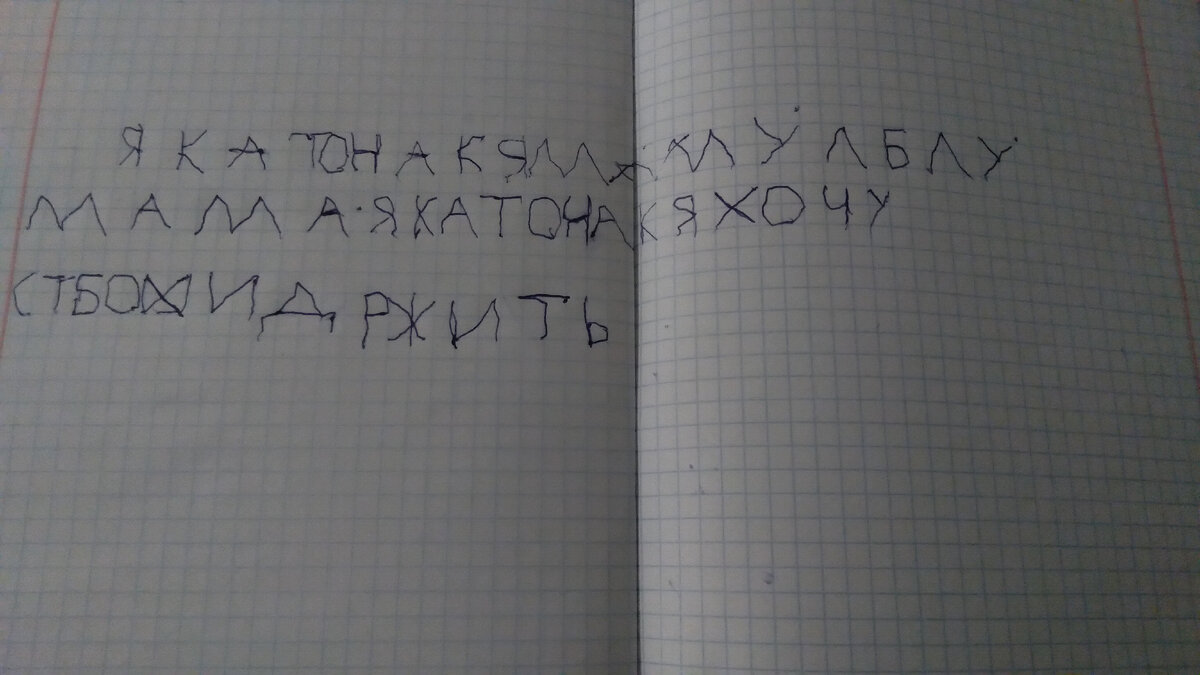 Я КАТОНАК Я МАМУ ЛБЛУ
МАМА·Я КАТОНАК Я ХОЧУ
СТБОЙ ИДРЖИТЬ